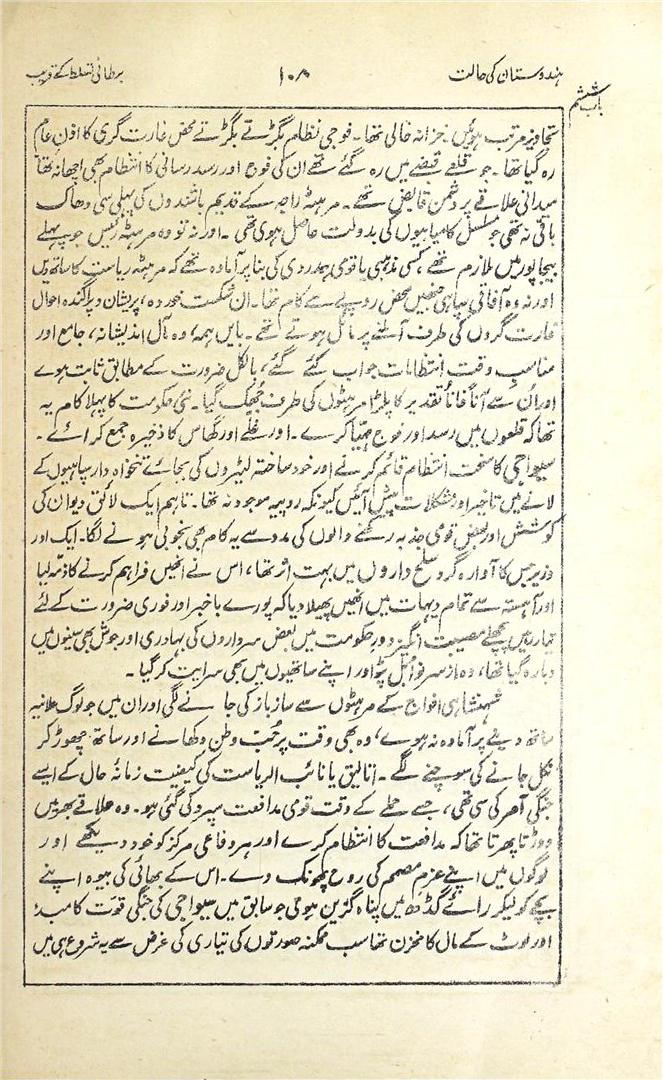 ہندوستان کی حالت
۱۰۸
برطانی تسلط کے قریب
باب ششم
تجاویز مرتب ہوئیں۔ خزانہ خالی تھا۔ فوجی نظام بگڑتے بگڑتے محض غارت گری کا اذن عام
رہ گیا تھا۔ جو قلعے قبضے میں رہ گئے تھے ان کی فوج اور رسد رسانی کا انتظام بھی اچھا نہ تھا
میدانی علاقے پر دشمن قابض تھے۔ مرہٹہ راجہ کے قدیم باشندوں کی پہلی سی دھاک
باقی نہ تھی جو مسلسل کامیابیوں کی بدولت حاصل ہوئی تھی۔ اور نہ تو وہ مرہٹہ رئیس جو پہلے
بیجاپور میں ملازم تھے، کسی مذہبی یا قومی ہمدردی کی بنا پر آمادہ تھے کہ مرہٹہ ریاست کا ساتھ دیں
اور نہ وہ آفاقی سپاہی جنھیں محض روپے سے کام تھا۔ ان شکست خوردہ، پریشان و پراگندہ احوال
غارت گروں کی طرف آنے پر مائل ہوتے تھے۔ بایں ہمہ، وہ مآل اندیشانہ، جامع اور
مناسب وقت انتظامات جو اب کئے گئے، بالکل ضرورت کے مطابق ثابت ہوے
اور ان سے آناً فاناً تقدیر کا پلڑا مرہٹوں کی طرف جھک گیا۔ نئی حکومت کا پہلا کام یہ
تھا کہ قلعوں میں رسد اور فوج مہیا کرے۔ اور غلے اور گھاس کا ذخیرہ جمع کرائے۔
سیواجی کا سخت انتظام قائم کرنے اور خود ساختہ لٹیروں کی بجائے تنخواہ دار سپاہیوں کے
لانے میں تاخیر اور مشکلات پیش آئیں کیونکہ روپیہ موجود نہ تھا۔ تاہم ایک لائق دیوان کی
کوشش اور بعض قومی جذبہ رکھنے والوں کی مدد سے یہ کام بھی بخوبی ہونے لگا۔ ایک اور
وزیر جس کا آوارہ گرد سلح داروں میں بہت اثر تھا، اس نے انھیں فراہم کرنے کا ذمہ لیا
اور آہستہ سے تمام دیہات میں انھیں پھیلا دیا کہ پورے باخبر اور فوری ضرورت کے لئے
تیار رہیں پچھلے مصیبت انگیز دور حکومت میں بعض سرداروں کی بہادری اور جوش بھی سینوں میں
دبا رہ گیا تھا، وہ از سر نو ابل پڑا اور اپنے ساتھیوں میں بھی سرایت کر گیا۔
شہنشاہی افواج کے مرہٹوں سے ساز باز کی جانے لگی اور ان میں جو لوگ علانیہ
ساتھ دینے پر آمادہ نہ ہوے، وہ بھی وقت پر حب وطن دکھانے اور ساتھ چھوڑ کر
نکل جانے کی سوچنے لگے۔ اتالیق یا نائب الریاست کی کیفیت زمانۂ حال کے ایسے
جنگی آمر کی سی تھی، جسے حملے کے وقت قومی مدافعت سپرد کی گئی ہو۔ وہ علاقے بھر میں
دوڑتا پھرتا تھا کہ مدافعت کا انتظام کرے اور ہر دفاعی مرکز کو خود دیکھے اور
لوگوں میں اپنے عزم مصمم کی روح پھونک دے۔ اس کے بھائی کی بیوہ اپنے
بچے کو لیکر رائے گڈھ میں پناہ گزین ہوئی جو سابق میں سیواجی کی جنگی قوت کا مبدء
اور لوٹ کے مال کا مخزن تھا سب ممکنہ صورتوں کی تیاری کی غرض سے یہ شروع ہی میں